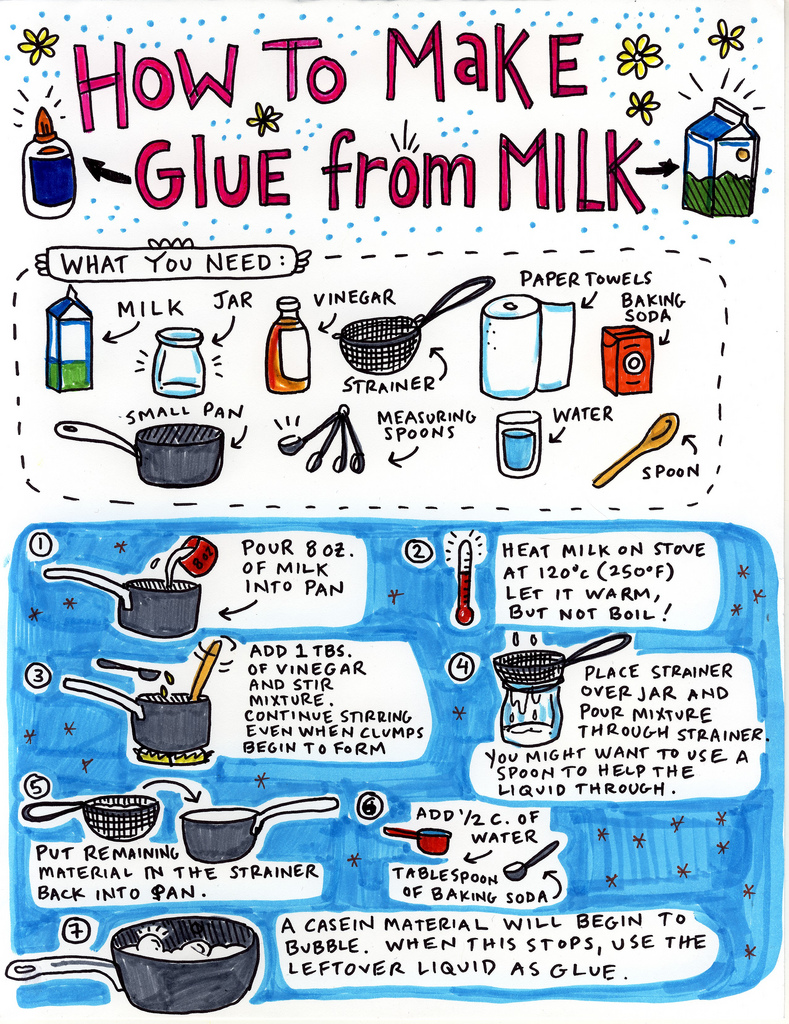 HOW TO MAKE
GLUE from MILK
WHAT YOU NEED:
MILK
JAR
VINEGAR
STRAINER
PAPER TOWELS
BAKING
SODA
SMALL PAN
MEASURING
SPOONS
WATER
SPOON
1
8 OZ
POUR 8 OZ.
OF MILK
INTO PAN
2
HEAT MILK ON STOVE
AT 120°C (250°F)
LET IT WARM,
BUT NOT BOIL!
3
ADD 1 TBS.
OF VINEGAR
AND STIR
MIXTURE.
CONTINUE STIRRING
EVEN WHEN CLUMPS
BEGIN TO FORM
4
PLACE STRAINER
OVER JAR AND
POUR MIXTURE
THROUGH STRAINER.
YOU MIGHT WANT TO USE A
SPOON TO HELP THE
LIQUID THROUGH.
5
PUT REMAINING
MATERIAL IN THE STRAINER
BACK INTO PAN.
6
ADD 1/2 C. OF
WATER
TABLESPOON
OF BAKING SODA
7
A CASEIN MATERIAL WILL BEGIN TO
BUBBLE. WHEN THIS STOPS, USE THE
LEFTOVER LIQUID AS GLUE.